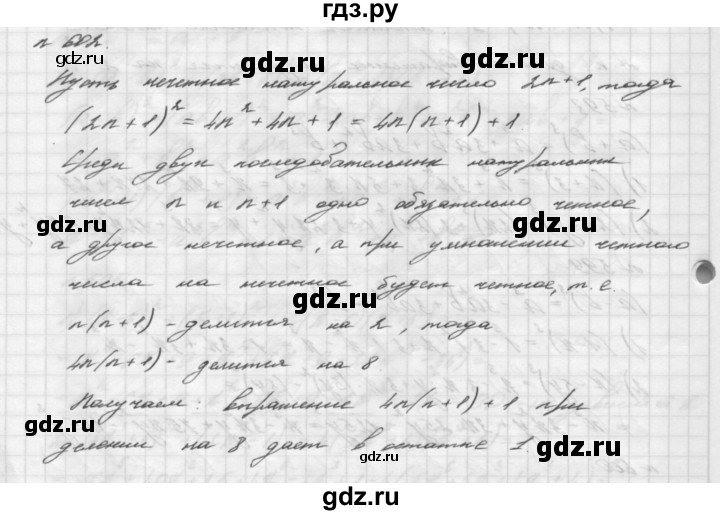 гдз.ру
n 602.
Пусть нечетное натуральное число 2n+1, тогда
(2n+1)² = 4n² + 4n + 1 = 4n(n+1) + 1
Среди двух последовательных натуральных
gdz.ru
чисел n и n+1 одно обязательно четное,
gdz.ru
а другое нечетное, а при умножении четного
числа на нечетное будет четное, т.е.
gdz.ru
n(n+1) - делится на 2, тогда
4n(n+1) - делится на 8
Получаем: выражение 4n(n+1)+1 при
gdz.ru
делении на 8 дает в остатке 1.
gdz.ru
gdz.ru